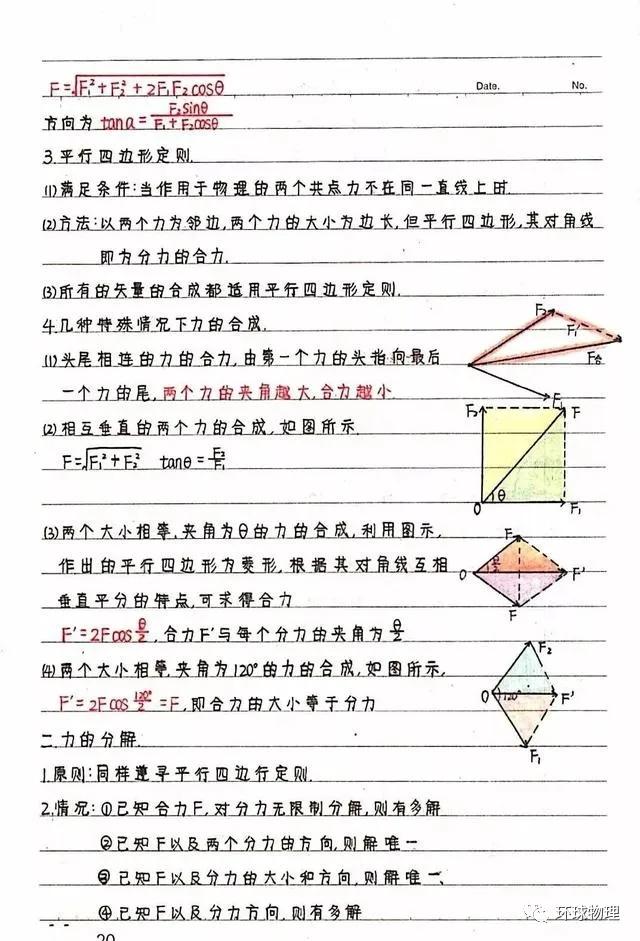 F=√F₁²+F₂²+2F₁F₂cosθ
Date. No.
方向为 tanα=F₂sinθ/F₁+F₂cosθ
3.平行四边形定则.
(1)满足条件:当作用于物理的两个共点力不在同一直线上时.
(2)方法:以两个力为邻边,两个力的大小为边长,但平行四边形,其对角线
即为分力的合力.
(3)所有的矢量的合成都适用平行四边形定则.
4.几种特殊情况下力的合成.
(1)头尾相连的力的合力,由第一个力的头指向最后
一个力的尾,两个力的夹角越大,合力越小.
F₂ F₁' F合 F₁
(2)相互垂直的两个力的合成,如图所示.
F=√F₁²+F₂² tanθ=F₂/F₁
F₂ F O θ F₁
(3)两个大小相等,夹角为θ的力的合成,利用图示,
作出的平行四边形为菱形,根据其对角线互相
垂直平分的特点,可求得合力
F'=2Fcosθ/2,合力F'与每个分力的夹角为θ/2
F O θ/2 F' F
(4)两个大小相等,夹角为120°的力的合成,如图所示,
F'=2Fcos120°/2=F,即合力的大小等于分力
F₂ O 120° F' F₁
二.力的分解.
1.原则:同样遵寻平行四边行定则.
2.情况:①已知合力F,对分力无限制分解,则有多解
②已知F以及两个分力的方向,则解唯一
③已知F以及分力的大小和方向,则解唯一、
④已知F以及分力方向,则有多解
环球物理
20